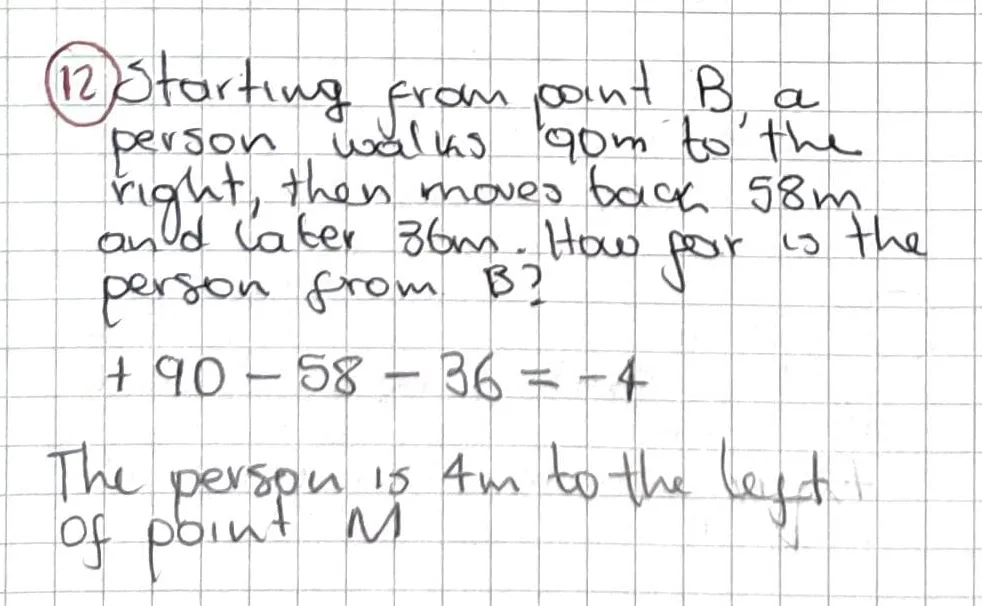 12 Starting from point B, a
person walks 90m to the
right, then moves back 58m
and later 36m. How far is the
person from B?
+ 90 - 58 - 36 = -4
The person is 4m to the left
of point M